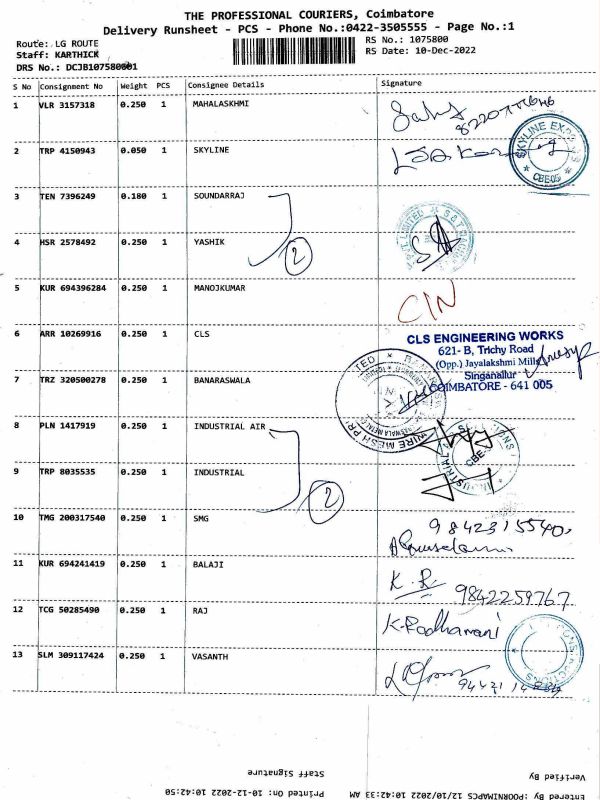 THE PROFESSIONAL COURIERS, Coimbatore
Delivery Runsheet - PCS - Phone No.:0422-3505555 - Page No.:1
Route: LG ROUTE RS No.: 1075800
Staff: KARTHICK RS Date: 10-Dec-2022
DRS No.: DCJB107580001
S No Consignment No Weight PCS Consignee Details Signature
1 VLR 3157318 0.250 1 MAHALASKHMI
2 TRP 4150943 0.050 1 SKYLINE
SKYLINE
CBE05
3 TEN 7396249 0.180 1 SOUNDARRAJ
4 HSR 2578492 0.250 1 YASHIK
2
5 KUR 694396284 0.250 1 MANOJKUMAR
6 ARR 10269916 0.250 1 CLS
CLS ENGINEERING WORKS
621- B, Trichy Road
(Opp.) Jayalakshmi Mills
Singanallur
COIMBATORE - 641 005
7 TRZ 320500278 0.250 1 BANARASWALA
WIRE MESH
8 PLN 1417919 0.250 1 INDUSTRIAL AIR
CBE
9 TRP 8035535 0.250 1 INDUSTRIAL
2
10 TMG 200317540 0.250 1 SMG
11 KUR 694241419 0.250 1 BALAJI
K. R 9842259767
12 TCG 50285490 0.250 1 RAJ
K.Radhamani
13 SLM 309117424 0.250 1 VASANTH
Staff Signature Verified By
Printed On: 10-12-2022 10:42:50 Entered By :POORNIMAPCS 12/10/2022 10:42:33 AM